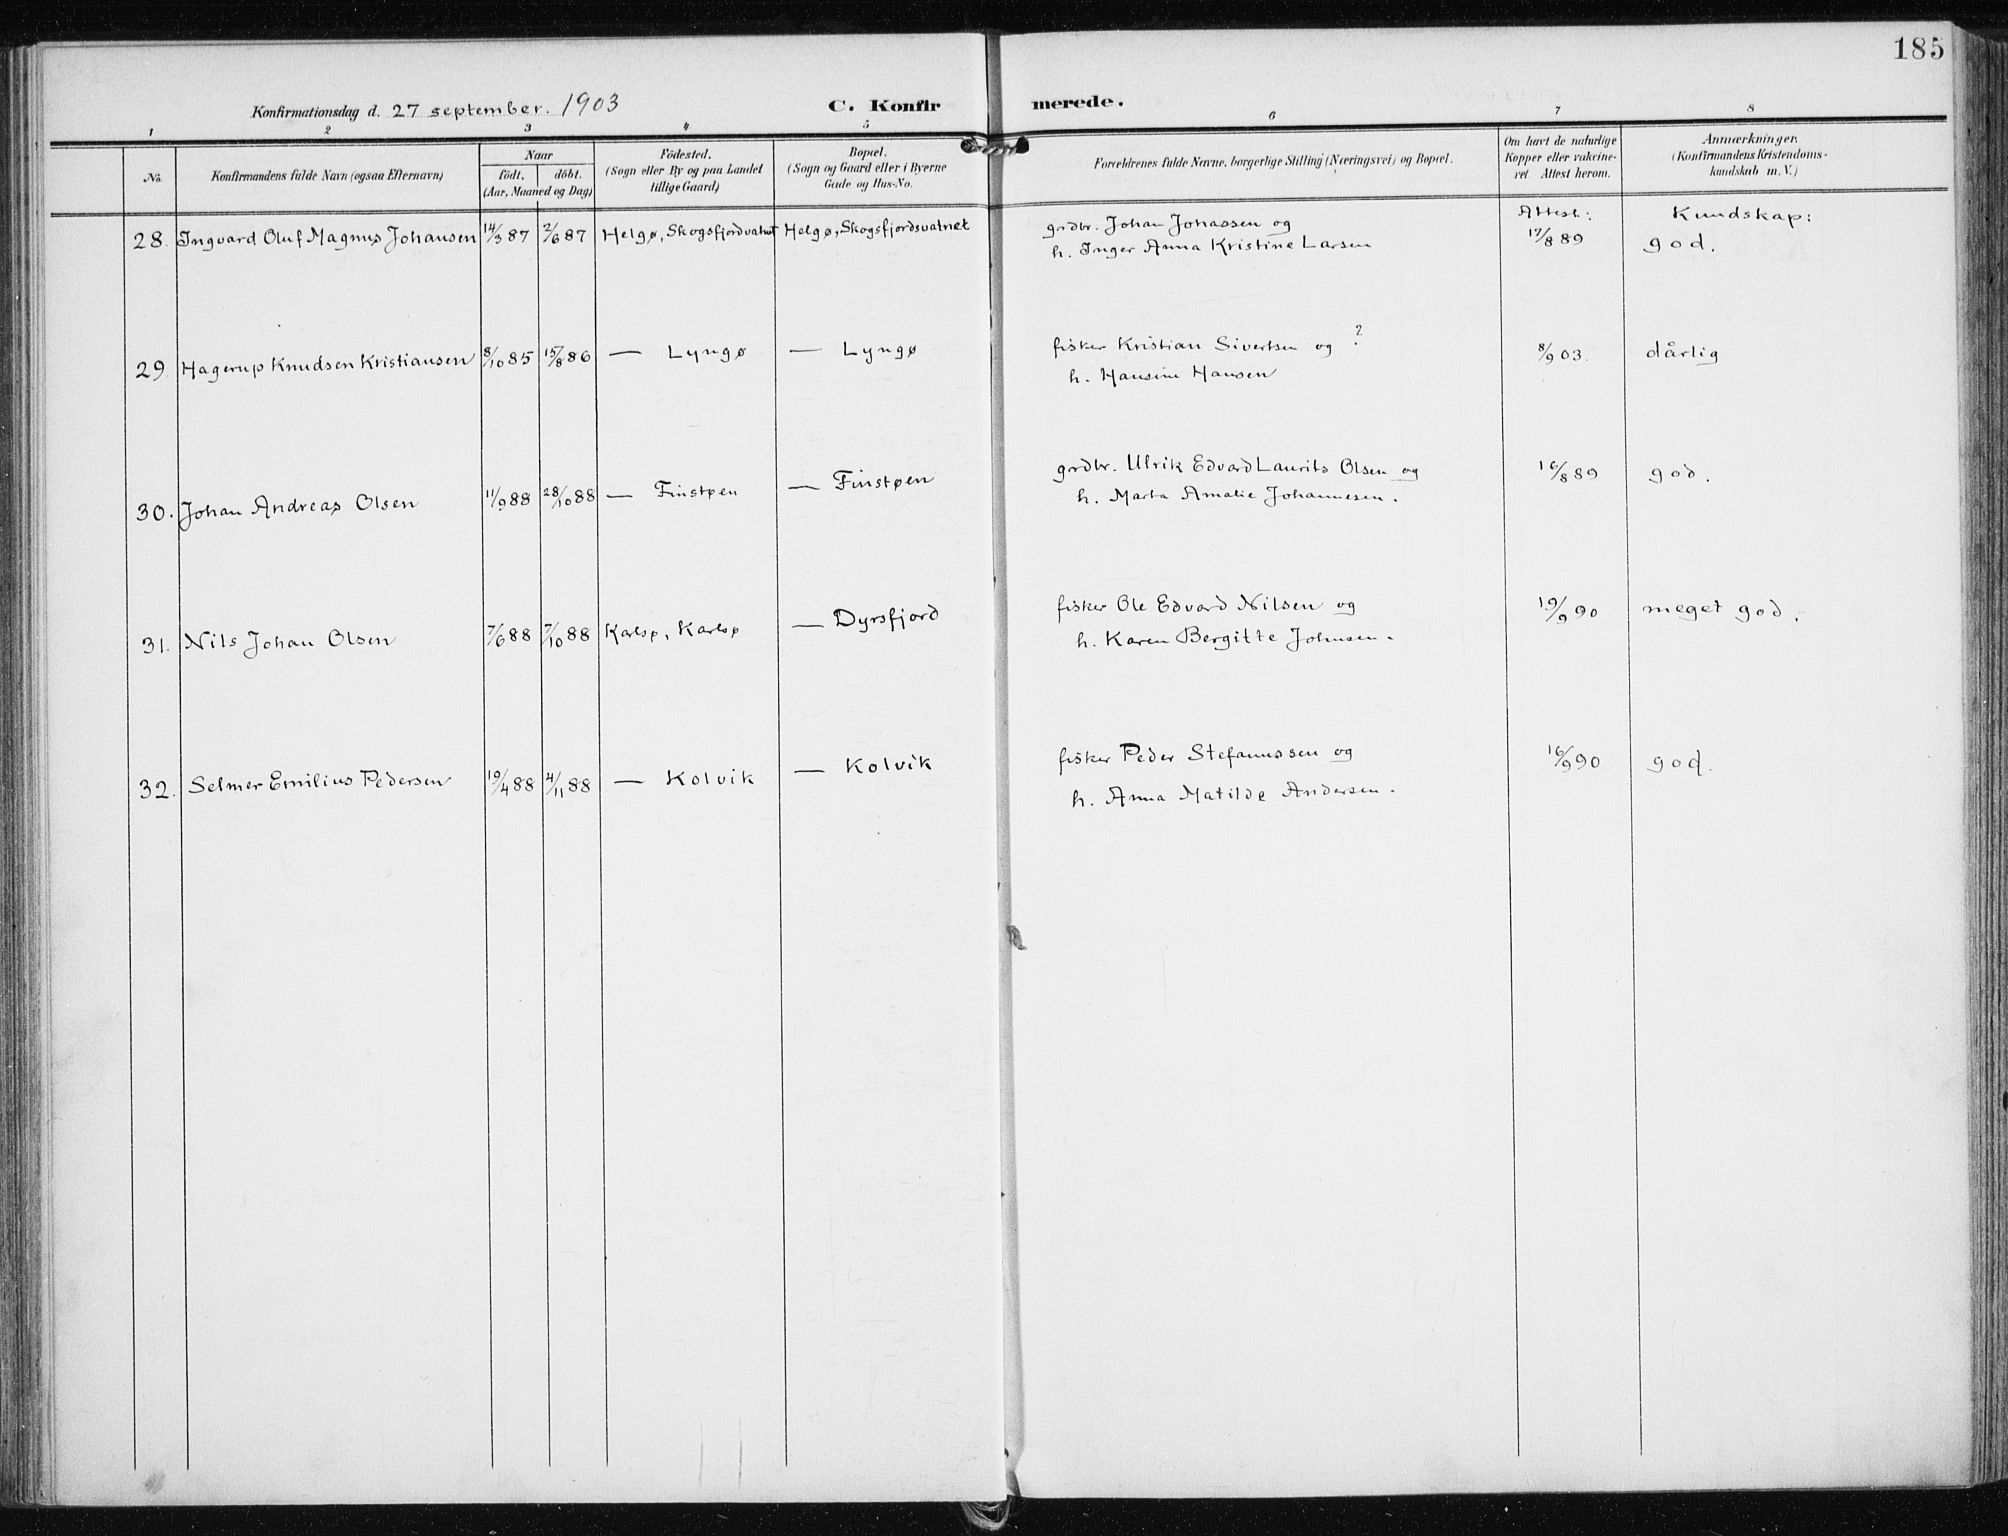 185
Konfirmationsdag d. 27 september. 1903 C. Konfirmerede.
1 2 3 4 5 6 7 8
No. Konfirmandens fulde Navn (ogsaa Efternavn) Naar født. døbt. (Aar, Maaned og Dag) Fødested. (Sogn eller By og paa Landet tillige Gaard) Bopæl. (Sogn og Gaard eller i Byerne Gade og Hus-No. Forældrenes fulde Navne, borgerlige Stilling (Næringsvei) og Bopæl. Om havt de naturlige Kopper eller vakcineret Attest herom. Anmærkninger. (Konfirmandens Kristendomskundskab m. V.)
Attest: Kundskap:
28. Ingvard Oluf Magnus Johansen 14/3 87 2/6 87 Helgø, Skogsfjordvatnet Helgø, Skogsfjordsvatnet grdbr. Johan Johassen og
h. Inger Anna Kristine Larsen 17/8 89 god.
29. Hagerup Knudsen Kristiansen 8/10 85 15/8 86 — Lyngø — Lyngø fisker Kristian Sivertsen og ?
h. Hansine Hansen 8/9 03. dårlig
30. Johan Andreas Olsen 11/9 88 28/10 88 — Finstøen — Finstøen grdbr. Ulrik Edvard Laurits Olsen og
h. Marta Amalie Johannesen. 16/8 89 god.
31. Nils Johan Olsen 7/6 88 7/10 88 Karlsø, Karlsø — Dyrsfjord fisker Ole Edvard Nilsen og
h. Karen Bergitte Johnsen. 19/9 90 meget god.
32. Selmer Emilius Pedersen 19/4 88 4/11 88 — Kolvik — Kolvik fisker Peder Stefanussen og
h. Anna Matilde Andersen. 16/9 90 god.